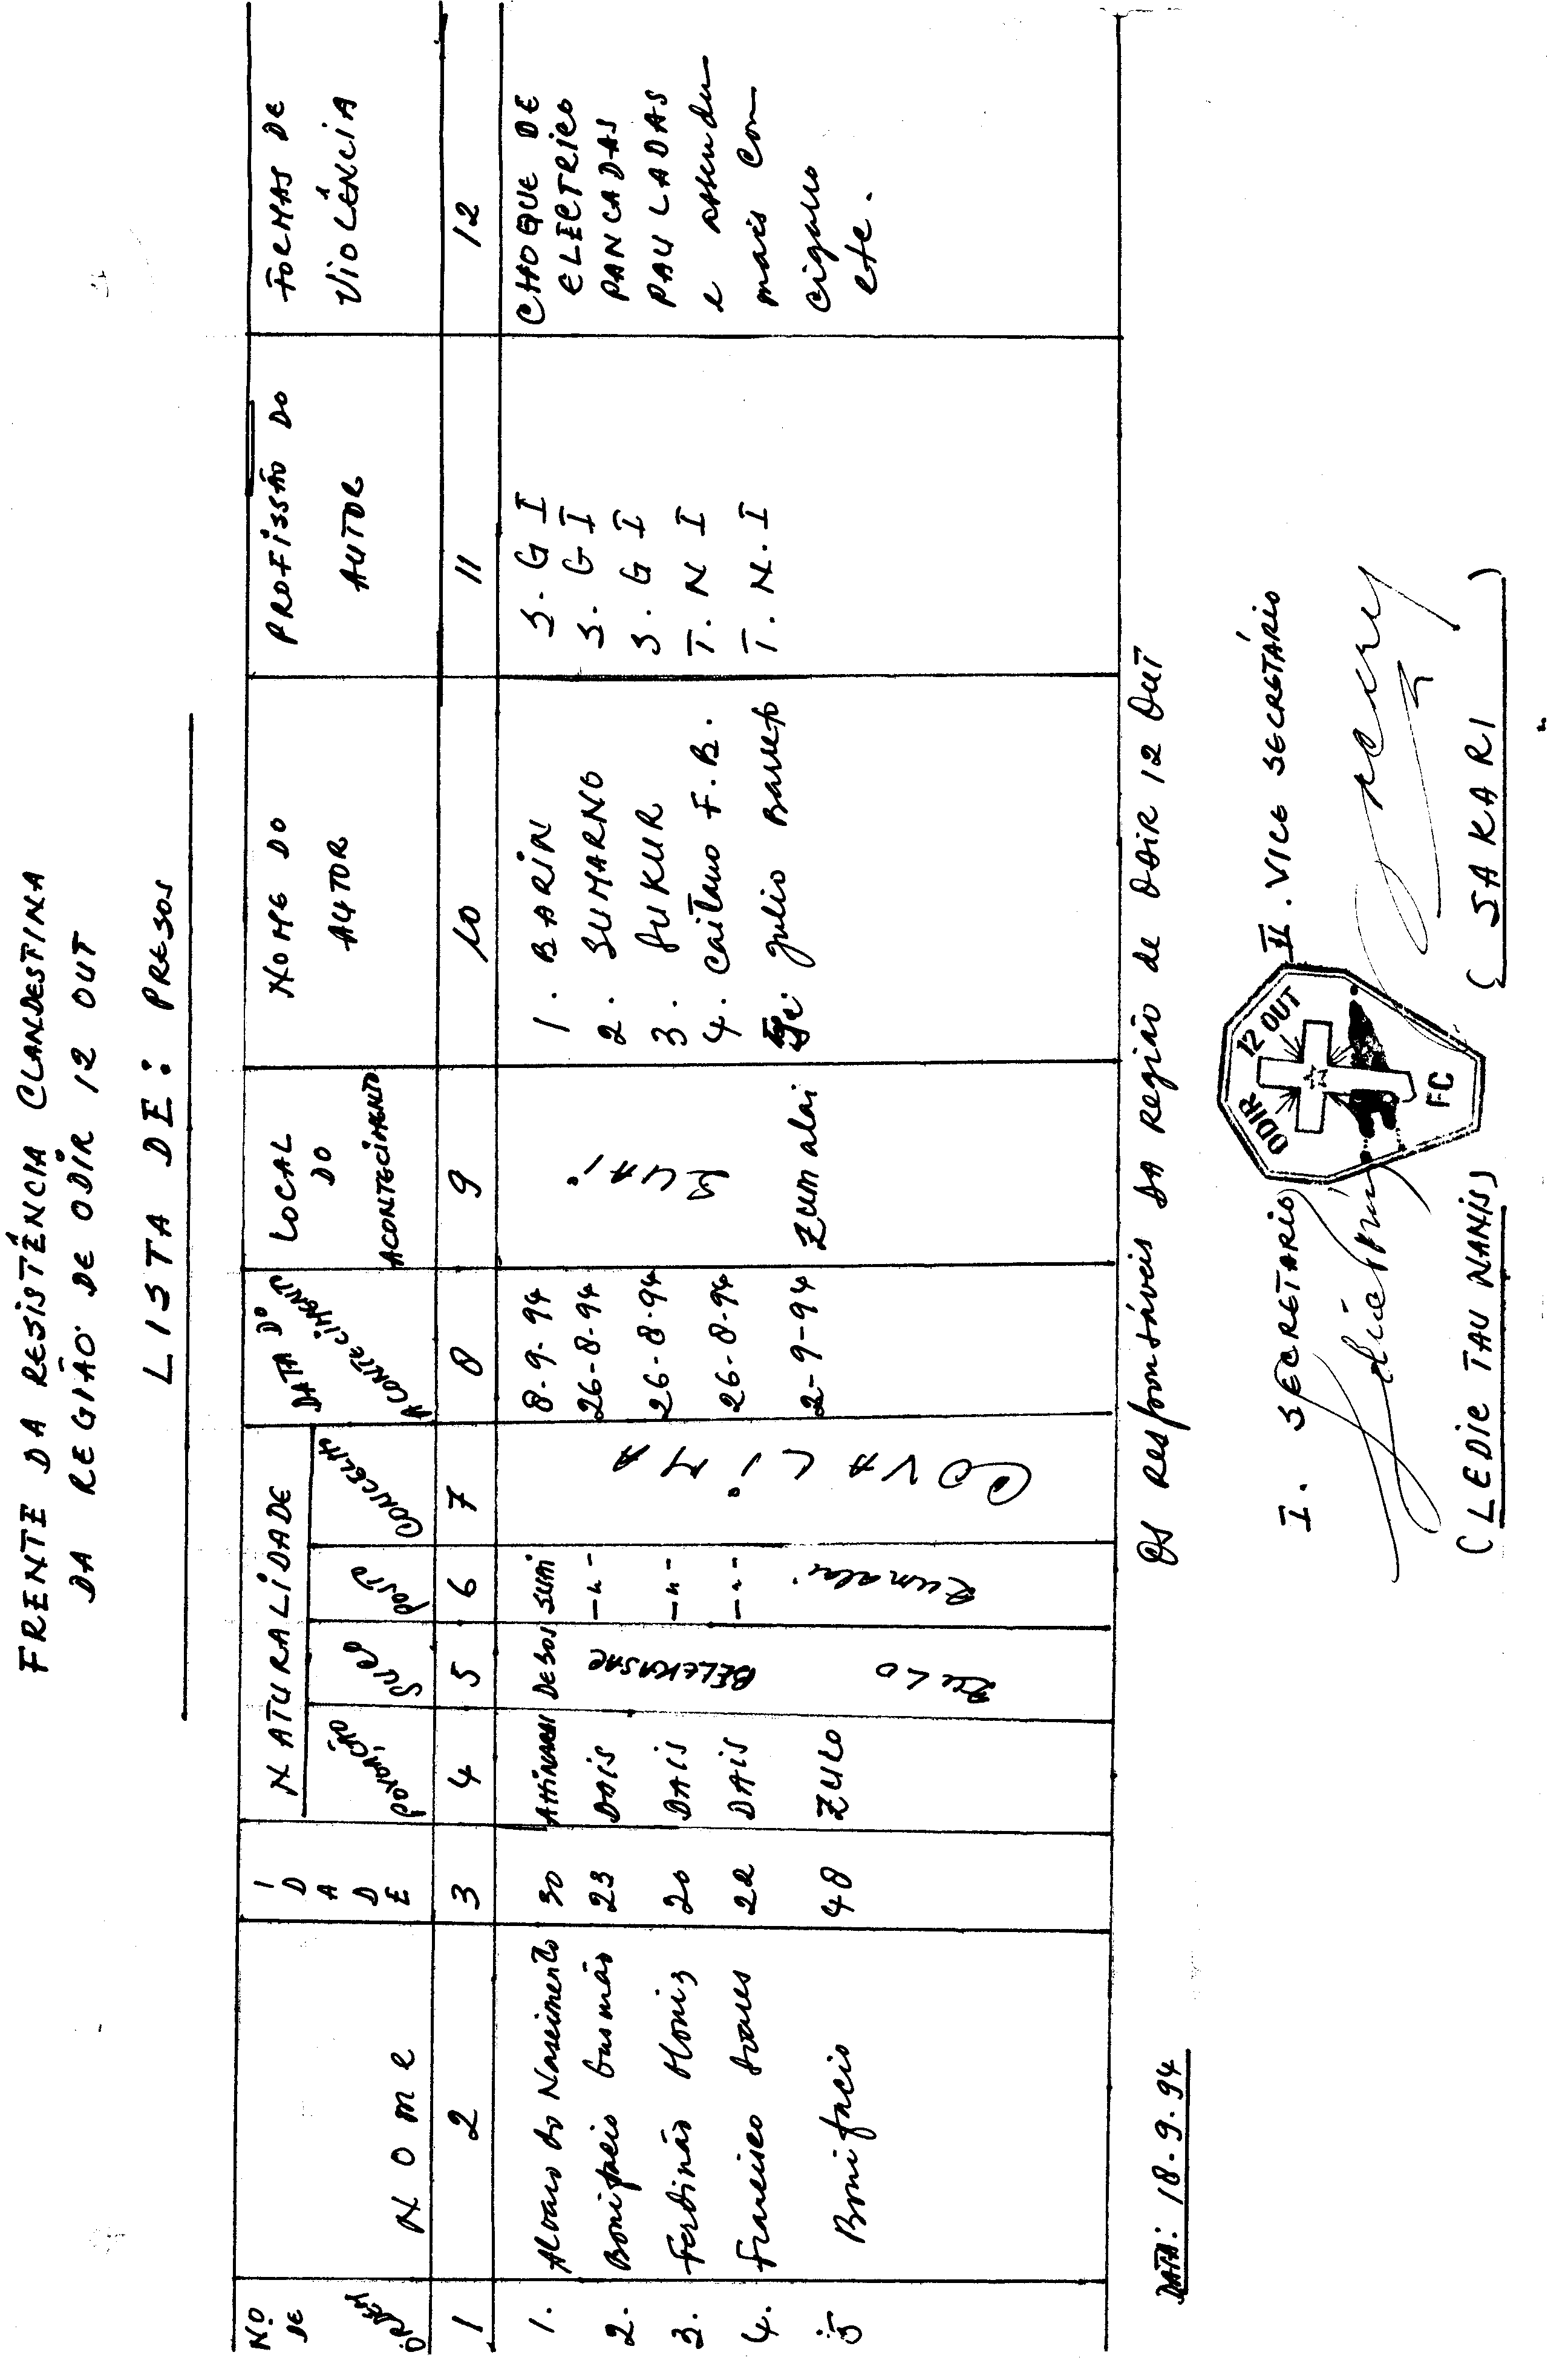 FRENTE DA RESISTÊNCIA CLANDESTINA
DA REGIÃO DE ODIR 12 OUT
LISTA DE: PRESOS
Nº DE ORDEM
Nome
IDADE
NATURALIDADE
POVOAÇÃO
SUCO
POSTO
CONCELHO
DATA DO ACONTECIMENTO
LOCAL DO ACONTECIMENTO
NOME DO AUTOR
PROFISSÃO DO AUTOR
FORMAS DE VIOLÊNCIA
1 2 3 4 5 6 7 8 9 10 11 12
1. Alvaro do Nascimento 30 DESOS SUAI 8-9-94 1. BARIN S.GI
2. Bonifacio Gusmão 23 DAIS BELEKASAC -"- 26-8-94 2. SUMARNO S.GI
3. Ferdinão Moniz 20 DAIS -"- 26-8-94 3. SUKUR S.GI
4. Francisco Soares 22 DAIS BELEKASAC -"- 26-8-94 4. Caitano F.B. T.NI
5 Bonifacio 48 ZULO ZULO Zumalai 2-9-94 Zumalai Julio Barreto T.N.I
COVALIMA
SUAI
CHOQUE DE
ELECTRICO
PANCADAS
PAULADAS
e
mais com
cigarro
etc.
Os Responsáveis da Região de ODIR 12 OUT
DATA: 18.9.94
I. SECRETARIO
II. VICE SECRETÁRIO
ODIR 12 OUT
FC
(LEDIE TAU NANIS)
(SAKARI)